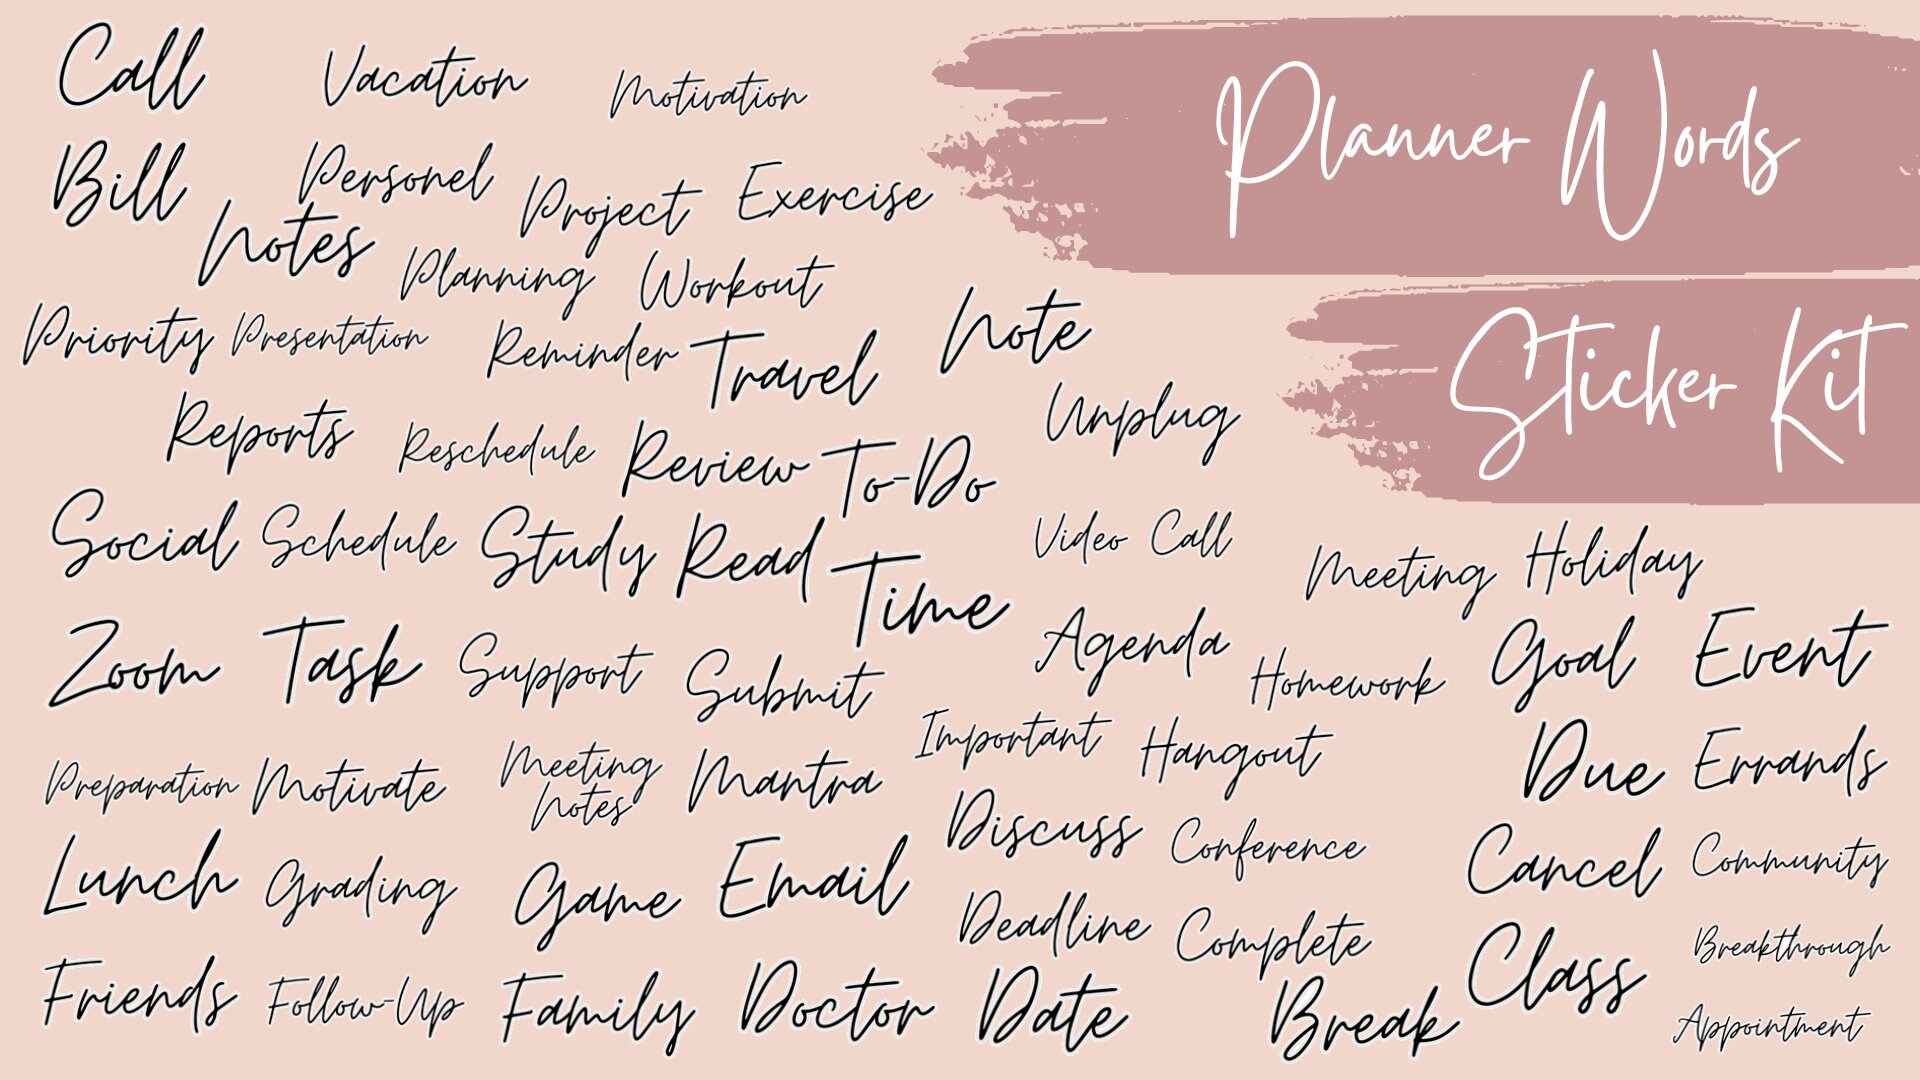 Planner Words
Sticker Kit
Call
Vacation
Motivation
Bill
Personel
Project
Exercise
Notes
Planning
Workout
Priority
Presentation
Reminder
Travel
Note
Reports
Reschedule
Review
To-Do
Unplug
Social
Schedule
Study
Read
Time
Video Call
Meeting
Holiday
Zoom
Task
Support
Submit
Agenda
Homework
Goal
Event
Preparation
Motivate
Meeting
Notes
Mantra
Important
Hangout
Due
Errands
Lunch
Grading
Game
Email
Discuss
Conference
Cancel
Community
Deadline
Complete
Class
Breakthrough
Friends
Follow-Up
Family
Doctor
Date
Break
Appointment